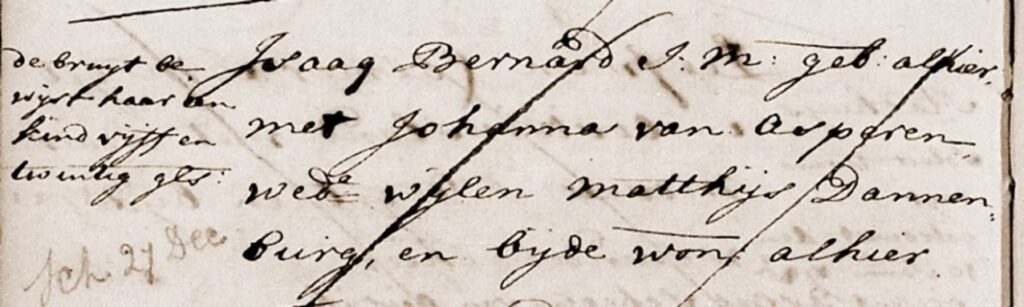 de bruyt be
wijst haar een
kind vijff en
twintig gls:
Isaaq Bernard J: M: geb: alhier,
met Johanna van Asperen,
wedᵉ wijlen Matthijs Dannen„
burg, en bijde won: alhier
Sch 27 Dec